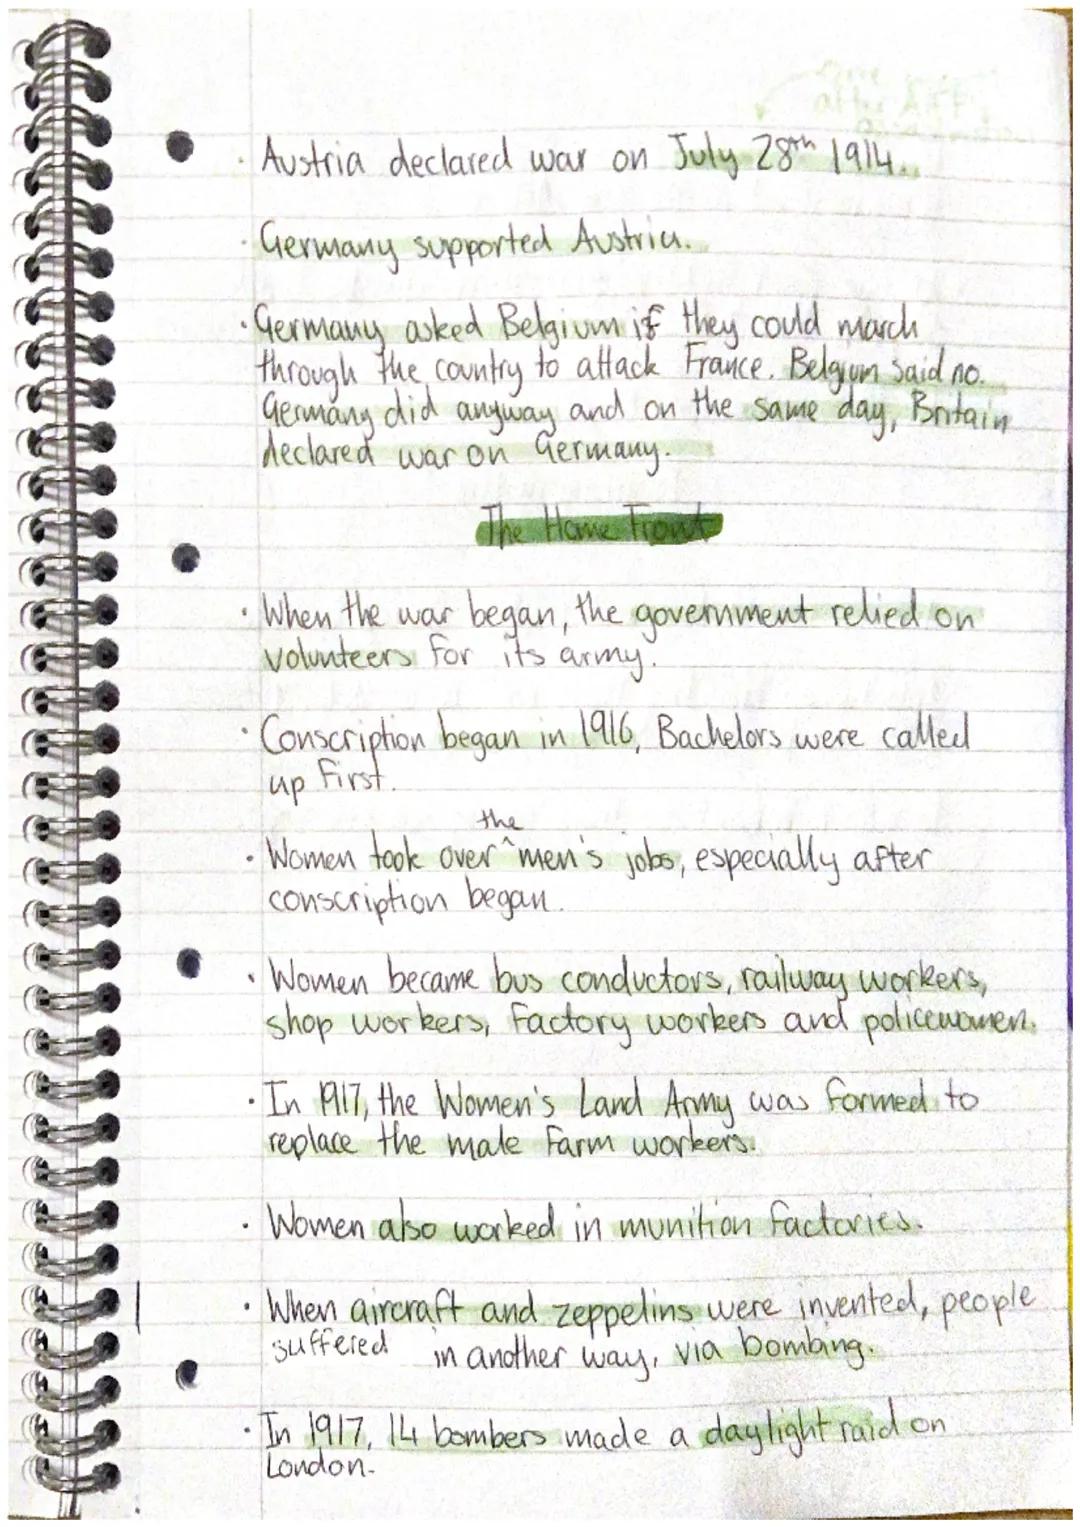 · Austria declared war on July 28th 1914.
· Germany supported Austria.
· Germany asked Belgium if they could march
through the country to attack France. Belgium said no.
Germany did anyway and on the same day, Britain
declared war on Germany.
The Home Front
· When the war began, the government relied on
volunteers for its army.
· Conscription began in 1916, Bachelors were called
up first.
the
· Women took over ^ men's jobs, especially after
conscription began.
· Women became bus conductors, railway workers,
shop workers, factory workers and policewomen.
· In 1917, the Women's Land Army was formed to
replace the male farm workers.
· Women also worked in munition factories.
· When aircraft and zeppelins were invented, people
suffered in another way, via bombing.
· In 1917, 14 bombers made a daylight raid on
London.